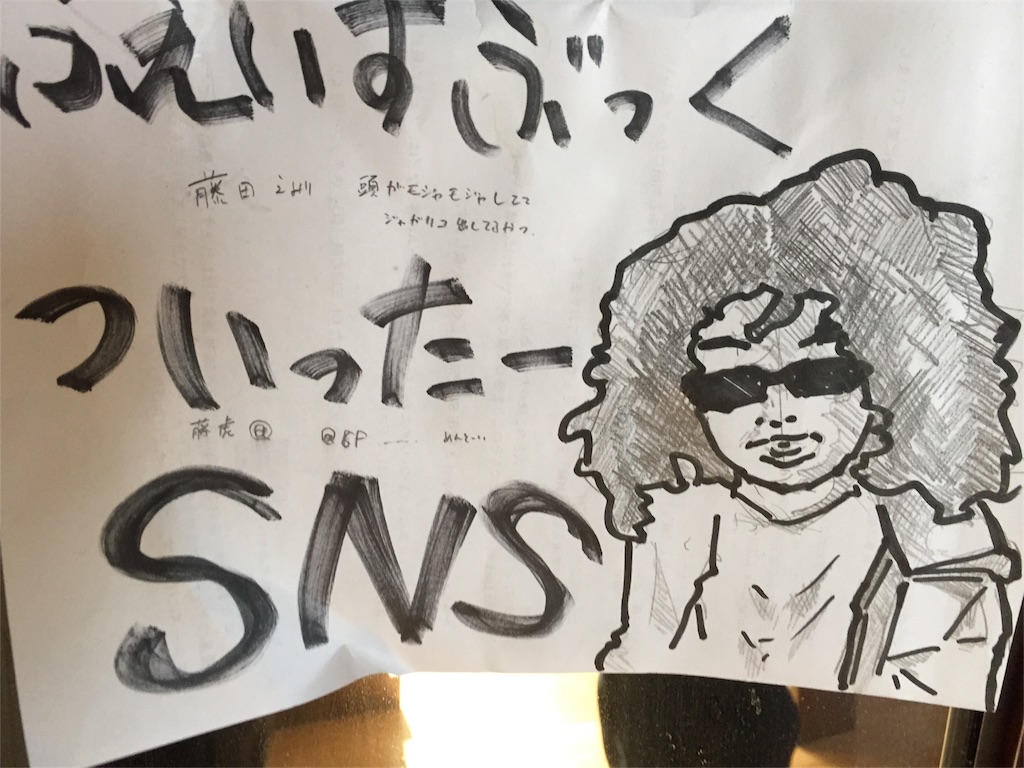 ふぇいすぶっく
藤田
頭がモジャモジャしてて
ジャガリコ出してるやつ.
ついったー
藤虎 @
めんどい
SNS